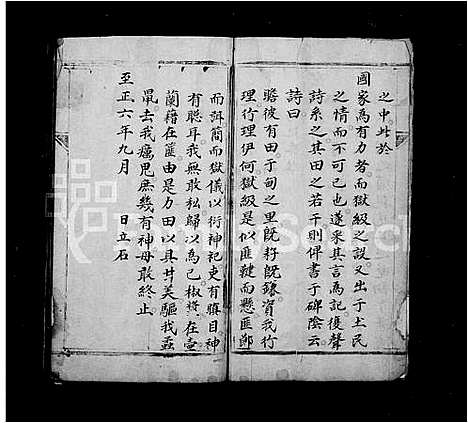 之中北於
國家為有力者而獄級之設又出于土民
之情而不可已也遂采其言為記復聲
詩系之其田之若干則俾書于碑陰云
詩曰
瞻彼有田于甸之里既籽既鎡資我行
理行理伊何獄級是以匪鞬而懸匪鄭
而誀簡而獄儀以衍神祀吏有騏目神
有聰耳我無敢私歸以為己椒漿在壺
蘭藉在匪由是力田以具廿美驅我
䑕去我癘毘庶幾有神毋敢終止
至正六年九月 日立石
FamilySearch